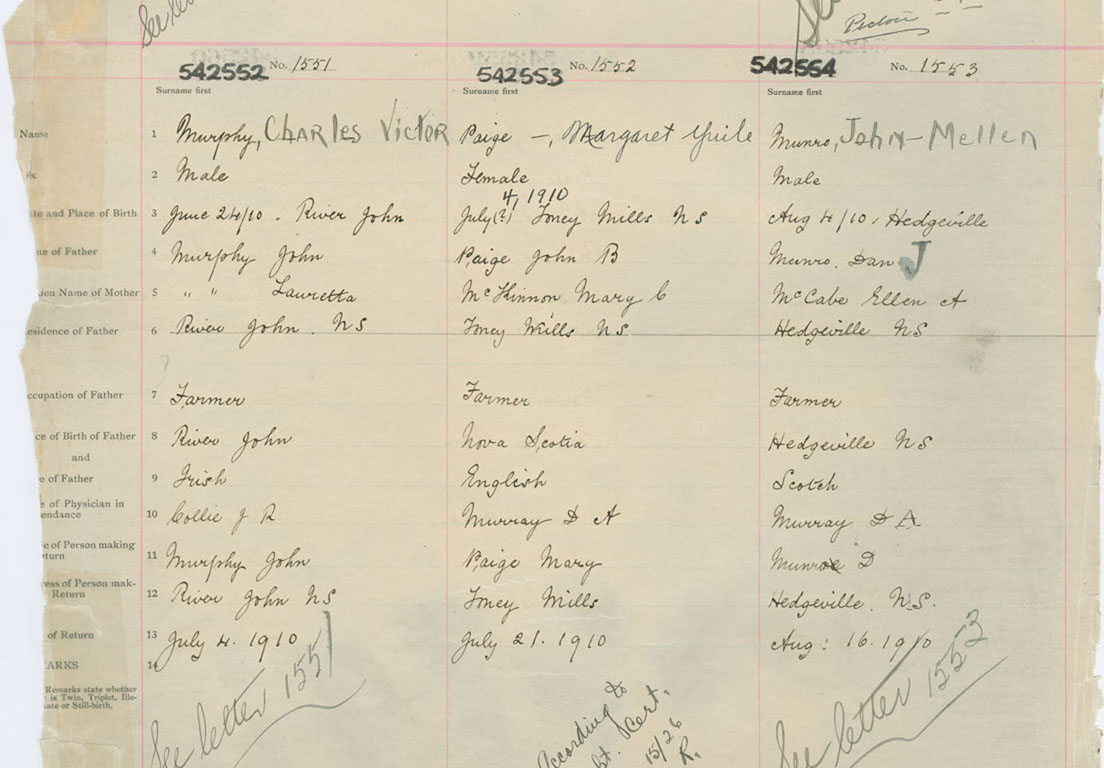 See
See
Pictou
542552 No. 1551 542553 No. 1552 542554 No. 1553
Surname first Surname first Surname first
Name 1 Murphy, Charles Victor Paige —, Margaret Yuile Munro, John-Mellen
2 Male Female Male
4, 1910
ate and Place of Birth 3 June 24/10. River John July(?) Toney Mills NS Aug 4/10. Hedgeville
ne of Father 4 Murphy John Paige John B Munro. Dan J
den Name of Mother 5 " " Lauretta McKinnon Mary C McCabe Ellen A
esidence of Father 6 River John. NS Toney Mills NS Hedgeville NS
ccupation of Father 7 Farmer Farmer Farmer
ce of Birth of Father 8 River John Nova Scotia Hedgeville NS
and
e of Father 9 Irish English Scotch
e of Physician in
endance 10 Collie J R Murray D A Murray D A
e of Person making
eturn 11 Murphy John Paige Mary Munroe D
ress of Person mak-
Return 12 River John NS Toney Mills Hedgeville. N.S.
of Return 13 July 4. 1910 July 21. 1910 Aug: 16. 1910
ARKS 14
Remarks state whether
is Twin, Triplet, Ille-
ate or Still-birth.
See letter 1551
According to
bt. Cert.
15/26
R.
See letter 1553